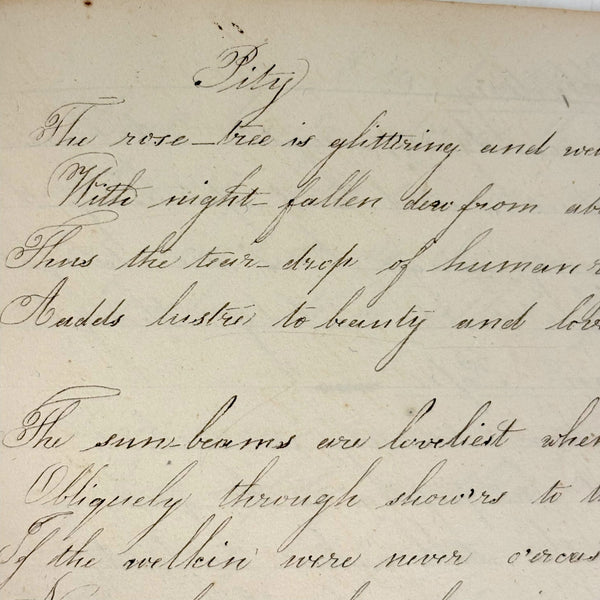 Pity
The rose-tree is glittering and
With night-fallen dew from
Thus the tear-drop of human
Aadds lustre to beauty and
The sun-beams are loveliest
Obliquely through showrs to
If the welkin were never